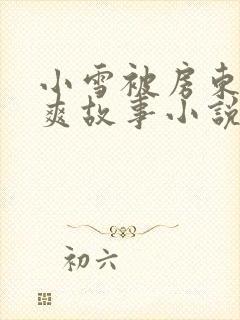 小雪被房东
爽故事小説
初六